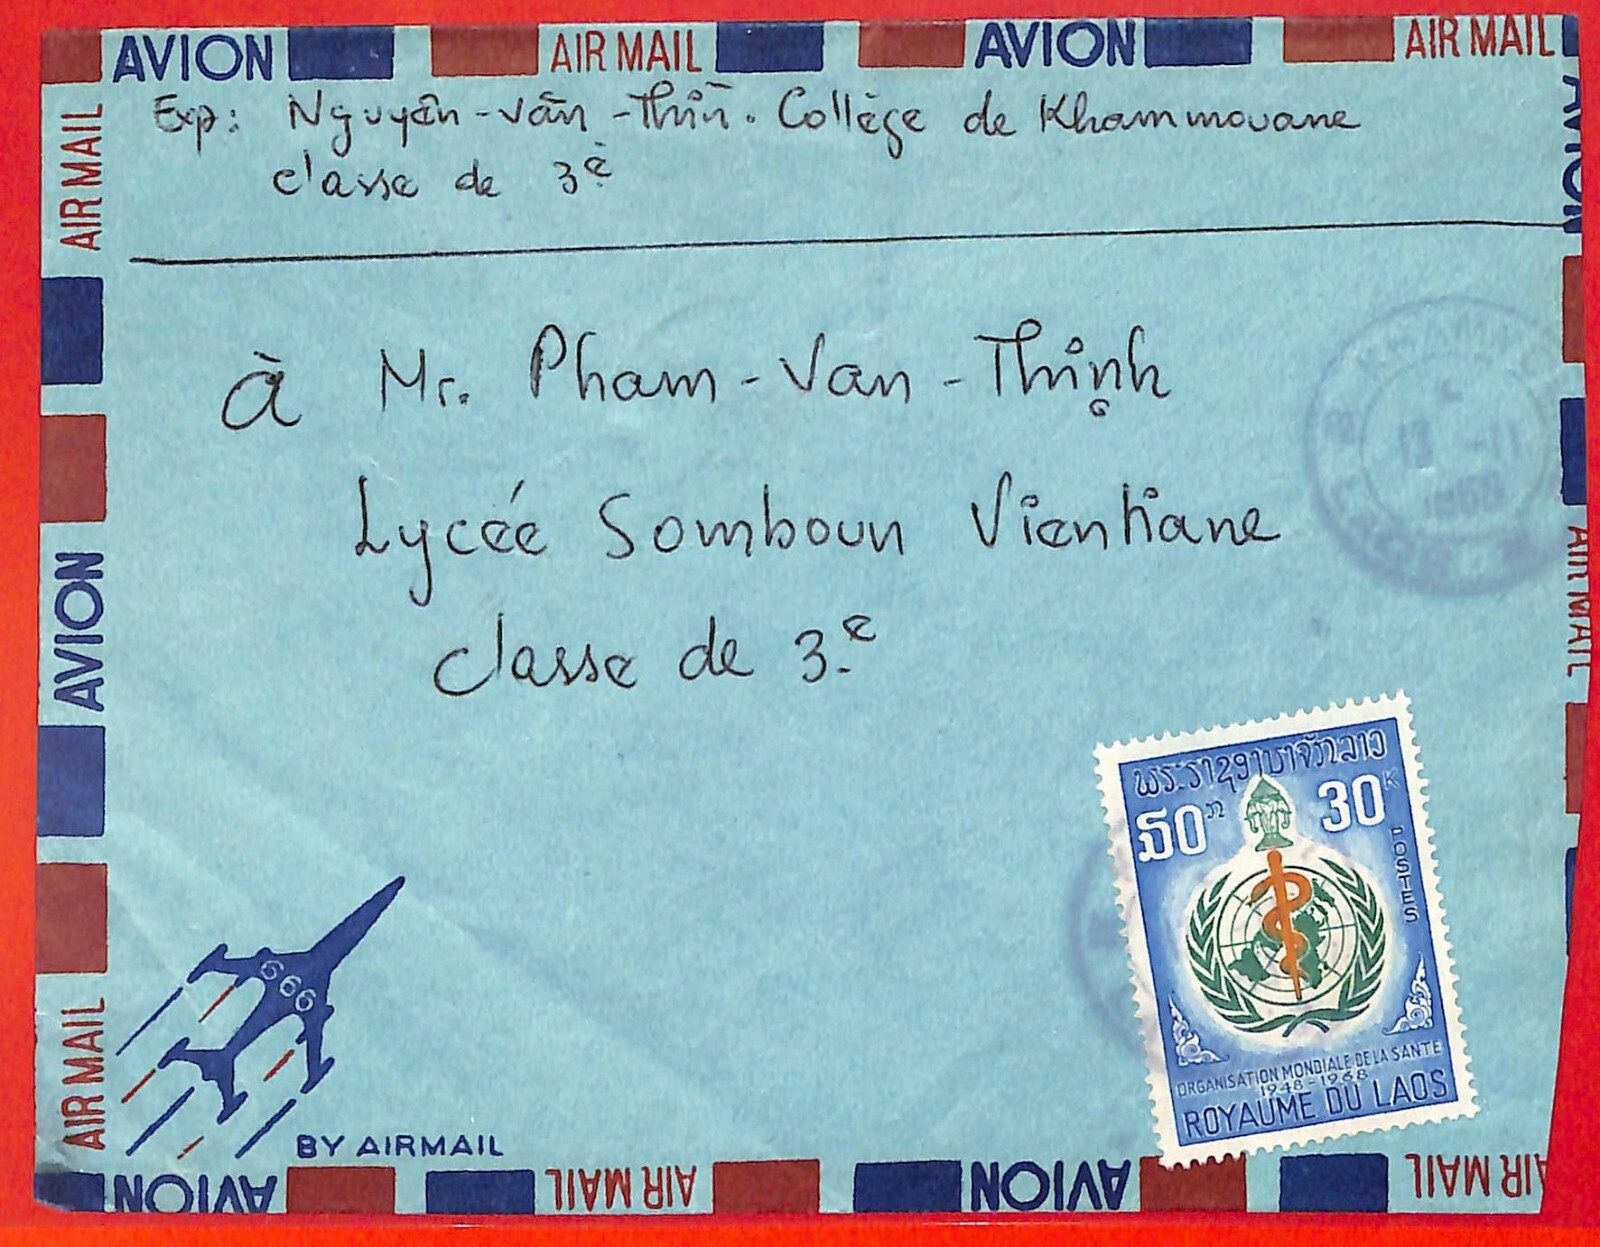 AVION AIR MAIL AVION AIR MAIL
Exp: Nguyên-Văn-Thìn. Collège de Khammouane
classe de 3e
à Mr. Pham-Van-Thịnh
Lycée Somboun Vientiane
classe de 3.e
13 -11
LAOS
AIR MAIL
AVION
AIR MAIL
AVION
AIR MAIL
ພຣະຣາຊອານາຈັກລາວ
໓໐ 30K
POSTES
ORGANISATION MONDIALE DE LA SANTÉ
1948-1968
ROYAUME DU LAOS
666
BY AIRMAIL
AVION AIR MAIL AVION AIR MAIL